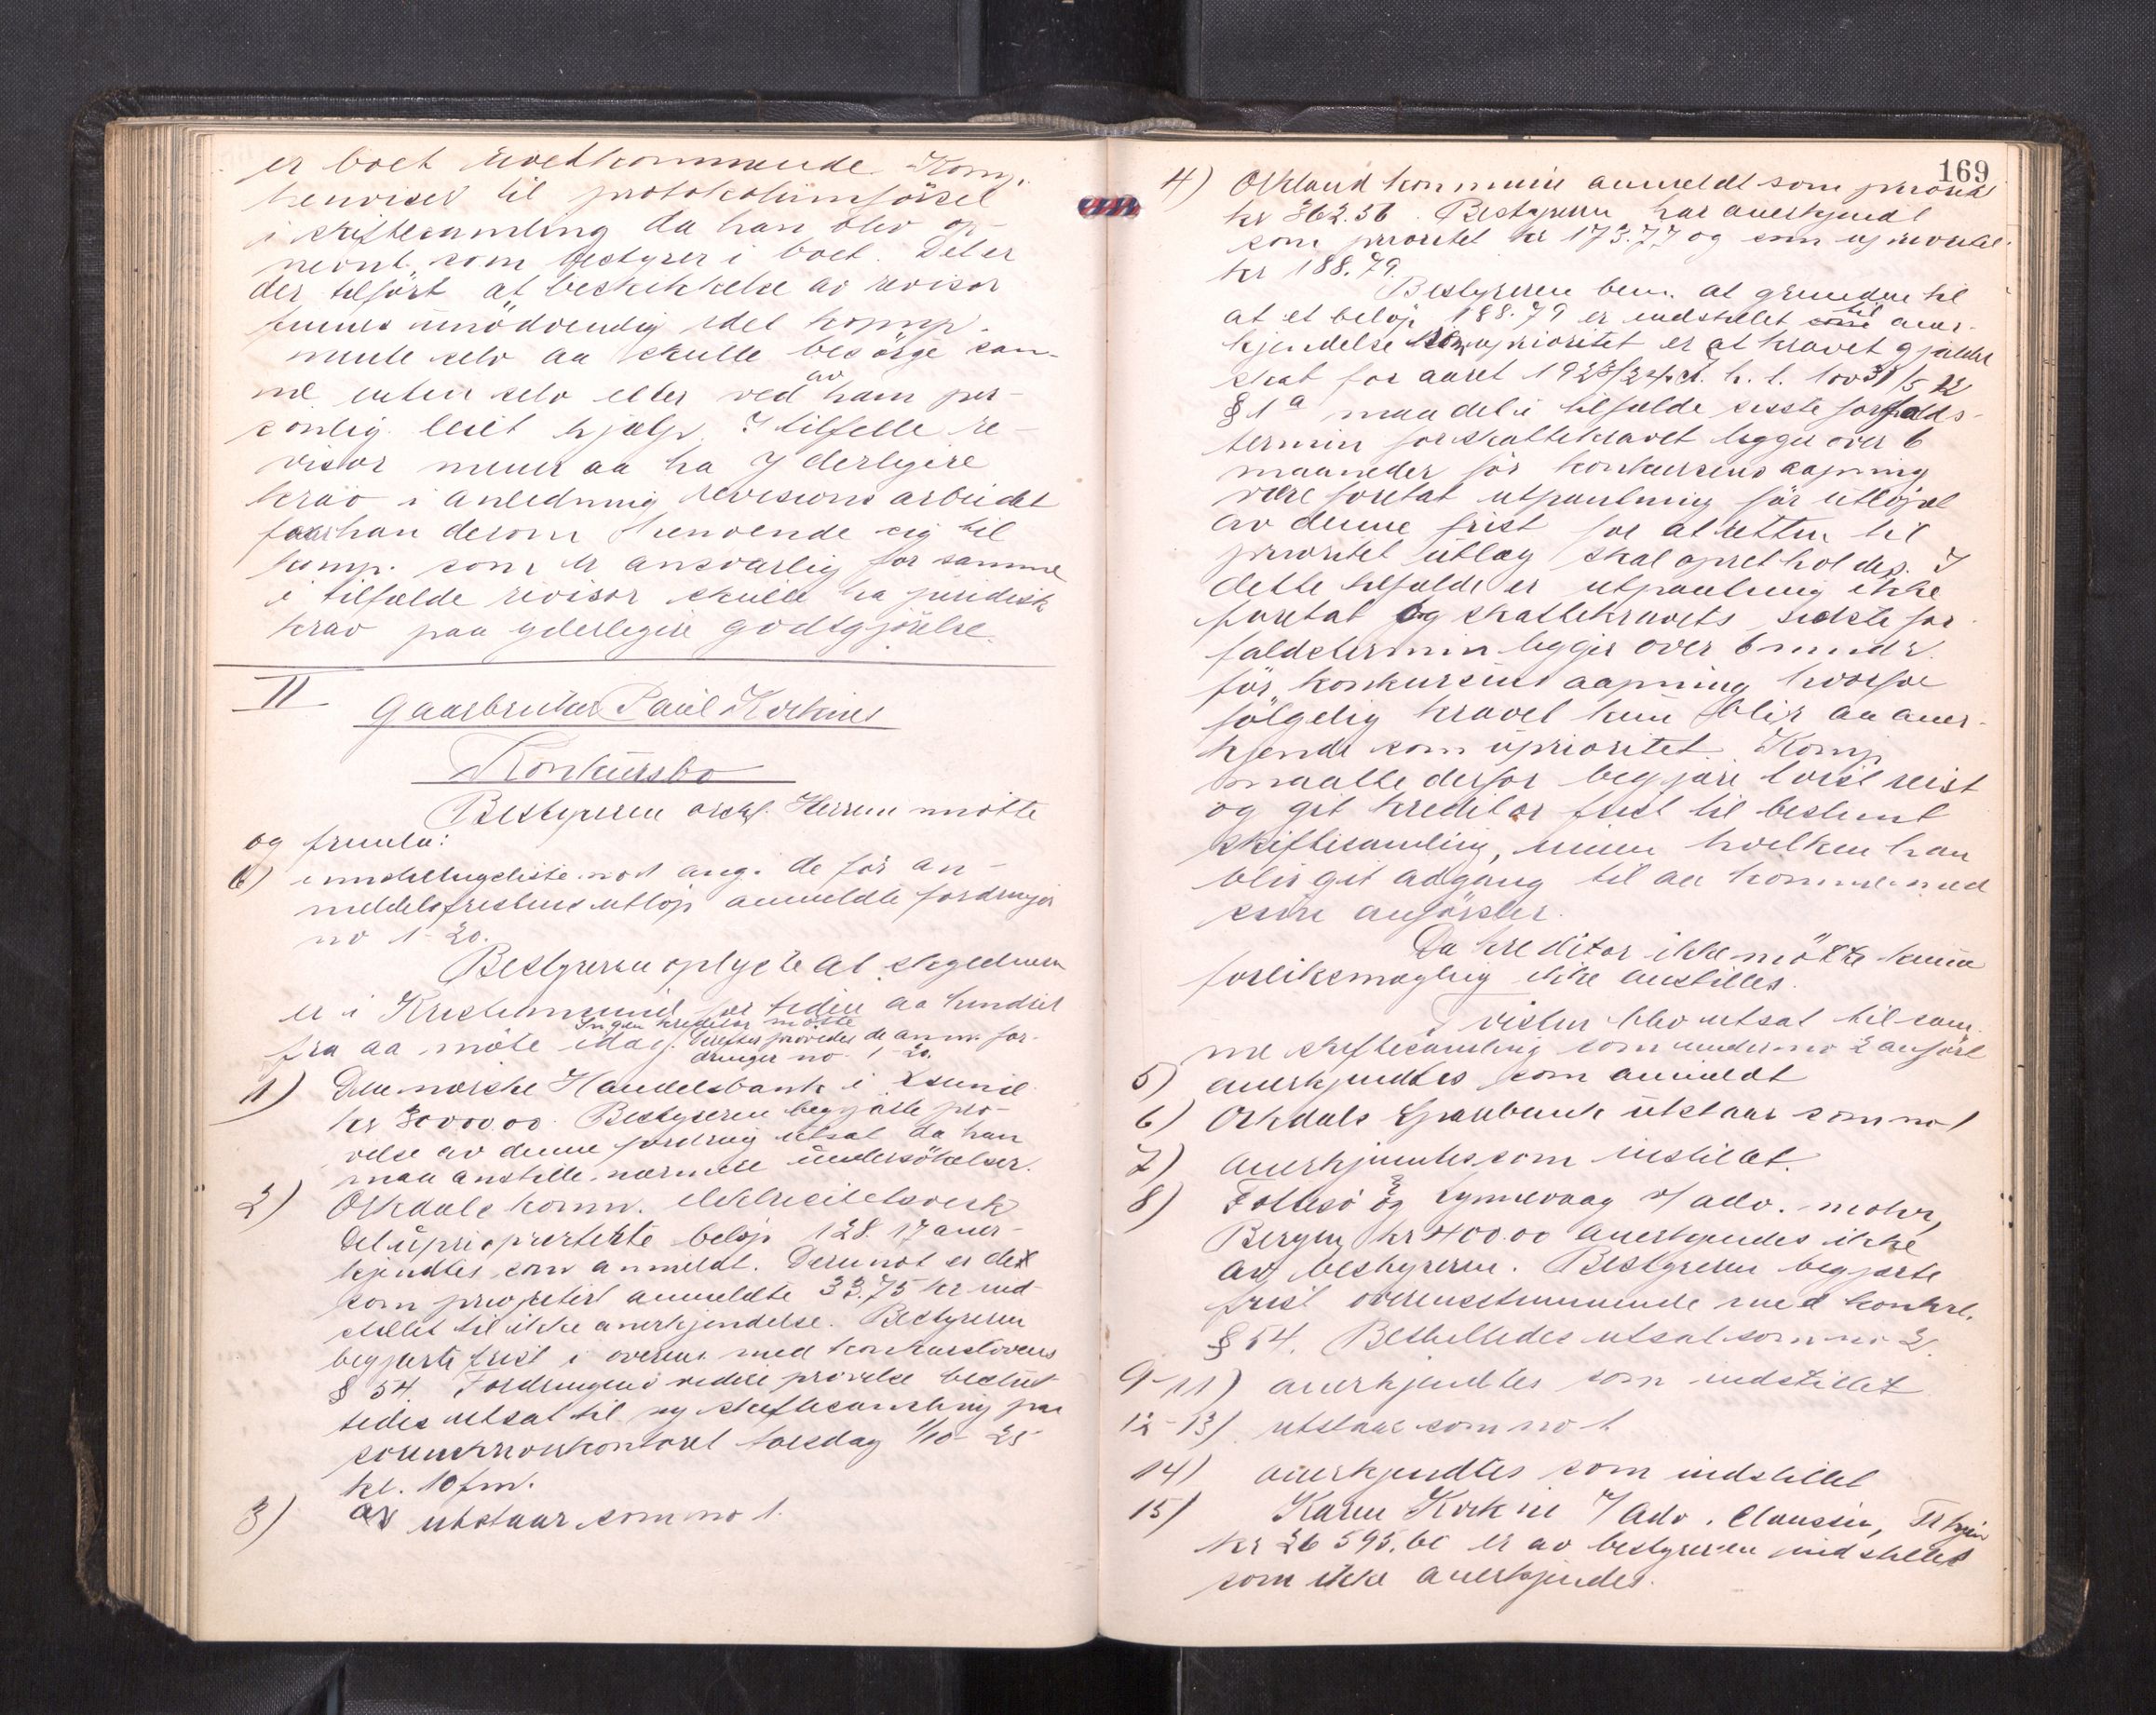 er boet uvedkommende. Komp.
henviser til protokoltilförsel
i skiftesamling da han blev op-
nevnt som bestyrer i boet. Det er
der tilfört at beskikkelse av revisor
unödvendig idet komp.
mente selv aa skulle besörge sam-
me enten selv eller ved av ham per-
sonlig leiet hjælp. I tilfelle re-
visor mener aa ha yderligere
krav i anledning revisions arbeidet
faar han derom henvende sig til
komp. som er ansvarlig for samme
i tilfælde revisor skulle ha juridisk
krav paa yderligere godtgjörelse.
II
Gaarbruker Paul Korknes
Konkursbo
Bestyreren Herrem mötte
og fremla:
6) inndstillingsliste no 1 ang. de för an-
meldelsfristens utlöp anmeldte fordringer
no 1-20.
Bestyreren oplyste at skyldneren
er i Kristiansund for tiden aa hindret
fra aa möte idag. Ingen kreditor mötte
Derefter prövedes de anm. for-
dringer no. 1-20.
1) Den norske Handelsbank i Ksund
kr 30000.00. Bestyreren begjærte prö-
velse av denne fordring utsat da han
maa anstille nærmere undersökelser.
2) Orkdals komm. elektricitetsverk
Det upriopriorterte belöp 128.17 aner-
kjendtes som anmeldt. Derimot er det
som prioritert anmeldte 33.75 kr ind-
stillet til ikke anerkjendelse. Bestyreren
begjærte frist i overens. med konkurslovens
§ 54. Fordringens videre prövelse beslut-
tedes utsat til ny skiftesamling paa
sorenskriverkontoret torsdag 1/10-25
kl. 10 fm.
3) utstaar som no 1.
169
4) Orkland kommune anmeldt som prioritet
kr 362.56. Bestyreren har anerkjendt
som prioritet kr 173.77 og som uprioritet
kr 188.79.
Bestyreren bem. at grunden til
at et belöp 188.79 er indstillet til aner-
kjendelse som uprioritet er at kravet gjælder
skat for aaret 1923/24. h. t. lov
§ 1a maa det i tilfælde sisste forfalds-
termin for skattekravet ligger over 6
maaneder för konkursens aapning
være foretat utpantning för utlöpet
av denne frist for at retten til
prioritet utlæg skal opretholdes. I
dette tilfælde er utpantning ikke
foretat og skattekravets sidste for-
faldstermin ligger over 6 mndr.
för konkursens aapning hvorfor
fölgelig kravet kun blir aa aner-
kjende som uprioritet. Komp
maatte derfor begjære tvist reist
og git kreditor frist til bestemt
skiftesamling, innen hvilken han
blir git adgang til aa komme med
sine anförsler.
Da kreditor ikke mötte kunne
forliksmægling ikke anstilles.
Tvisten blev utsat til sam-
me skiftesamling som under no 2 anfört
5) anerkjendtes som anmeldt
6) Orkdals Sparebank utstaar som no 1
7) anerkjendtes som indstillet.
8) og Synnevaag v/ adv. Mohr,
Bergen kr 400.00 anerkjendes ikke
av bestyreren. Bestyreren begjærte
frist overensstemmende med konkl.
§ 54. Besluttedes utsat som no 2.
9-11) anerkjendtes som indstillet
12-13) utstaar som no 1
14) anerkjendtes som indstillet
15) Karen Korknes v/ Adv. Claussen, Trhjem
kr 26595.60 er av bestyreren indstillet
som ikke anerkjendes.